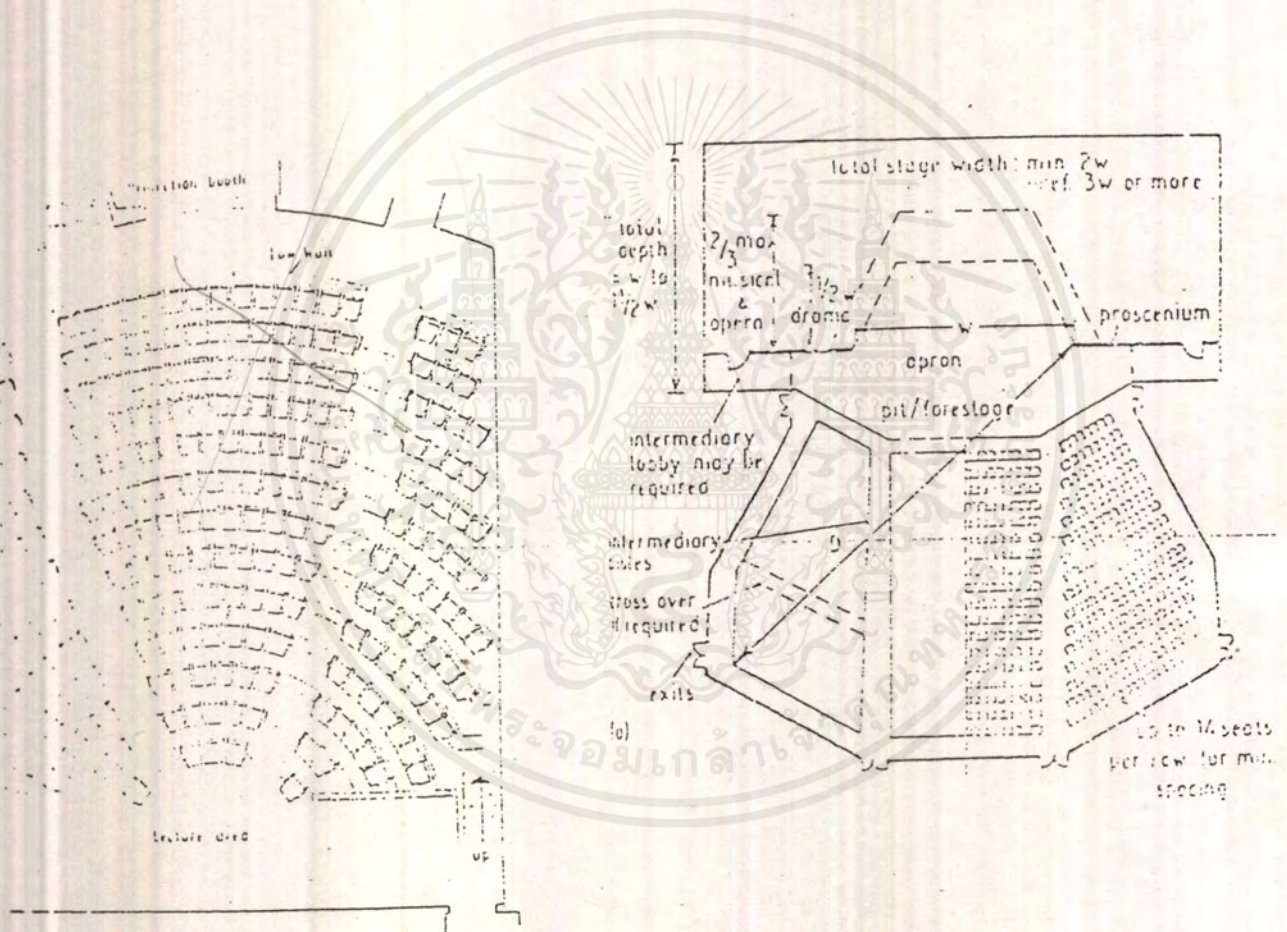 booth
low wall
lecture area
up
total stage width: min. 2w
pref. 3w or more
total
depth
= w to
1/2 w
2/3 max
musical
&
opera
1/2 w
drama
w
proscenium
apron
pit/forestage
intermediary
lobby may be
required
intermediary
aisles
D
cross over
if required
exits
(a)
up to 14 seats
per row for min.
spacing
พระจอมเกล้าเจ้าคุณทหาร